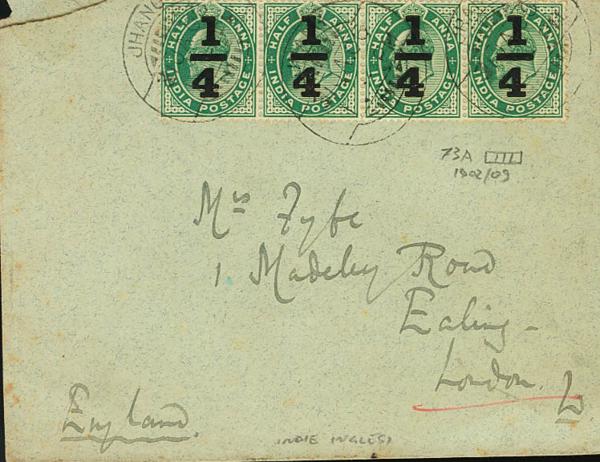 JHANG
HALF ANNA HALF ANNA HALF ANNA HALF ANNA
1/4 1/4 1/4 1/4
INDIA POSTAGE INDIA POSTAGE INDIA POSTAGE INDIA POSTAGE
73A
1902/09
Mrs Fyfe
1 Madeley Road
Ealing -
London.
England.
INDIE INGLESI